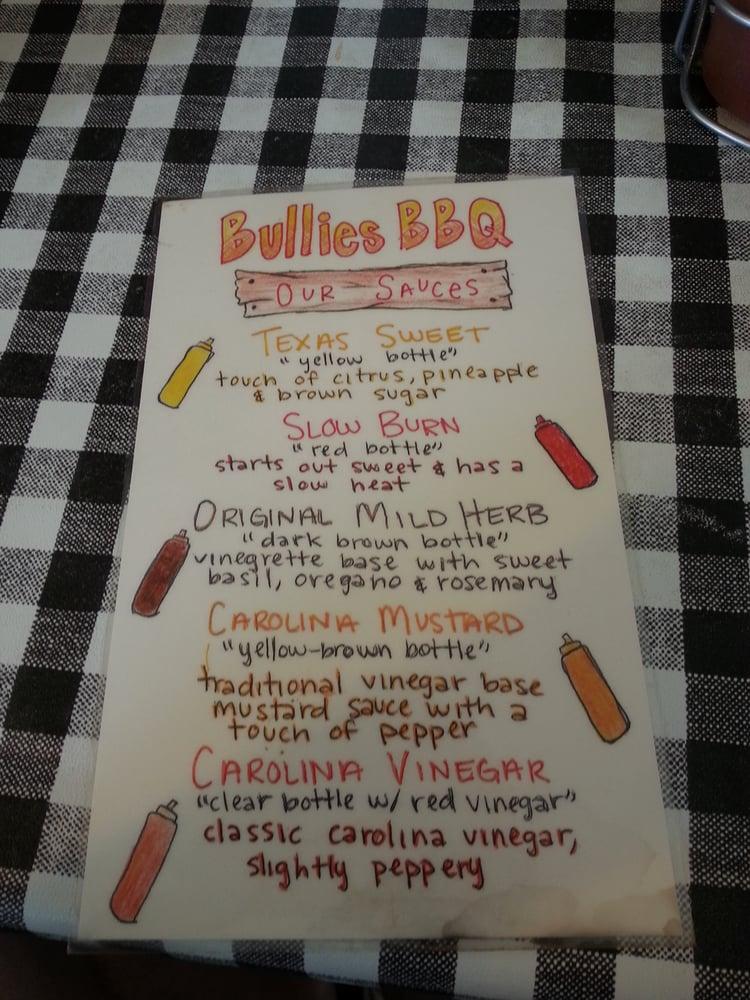 Bullies BBQ
OUR SAUCES
TEXAS SWEET
"yellow bottle"
touch of citrus, pineapple
& brown sugar
SLOW BURN
"red bottle"
starts out sweet & has a
slow heat
ORIGINAL MILD HERB
"dark brown bottle"
vinegrette base with sweet
basil, oregano & rosemary
CAROLINA MUSTARD
"yellow-brown bottle"
traditional vinegar base
mustard sauce with a
touch of pepper
CAROLINA VINEGAR
"clear bottle w/ red vinegar"
classic carolina vinegar,
slightly peppery